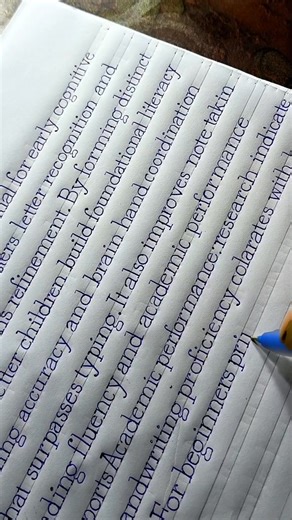 al for early cognitive
letter recognition and
s refinement. By forming distinct
children build foundational literacy
ng accuracy and brain hand coordination
hat surpasses typing. It also improves note takin
ding fluency and academic performance
Academic performance. research indicate
andwriting proficiency
For beginners pri